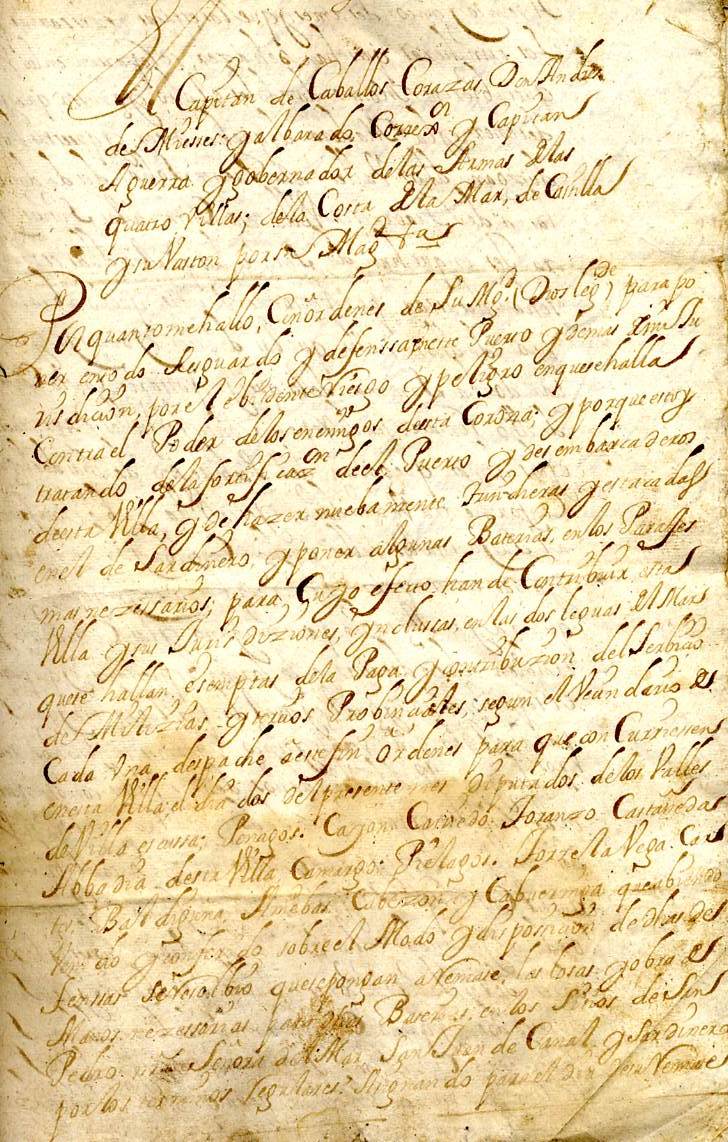 El Capitan de Caballos Corazas, Don Andres
de Mieses y albarado, Correxor y Capitan
Aguerra y gobernador de las Armas de las
quatro Villas; de la Costa de la Mar, de Castilla
por su Magd
Por quanto me hallo, Con ordenes de Su Mgd. (Dios legde) para po
ner en todo Resguardo y defenssa, este Puerto y demas de mi Ju
risdicion, por el ebidente Riesgo y peligro en que se halla
Contra el Poder de los enemigos desta Corona; y porque estoy
tratando de la fortificazon de el Puerto y desembarcaderos
de esta Villa, y de hazer nuebamente trincheras y estacadas
en el de Sardinero, y poner algunas Baterias, en los Parajes
mas nezessarios; para Cuyo efecto, han de Contribuir, esta
Villa y sus Jurisdiziones, ynclussas, en las dos leguas del Mar
que se hallan esemptas de la Paga y contribuzion del Serbicio
de Milizias y terzios Probinciales, segun el Veundario de
Cada Una, despache a este fin ordenes para que con Curriessen
en esta Villa el dia dos del presente mes Diputados de los Valles
de Villaescussa, Penagos, Cayon, Carriedo, Toranzo, Castañeda
Abbadia desta Villa, Camargo, Pielagos, Torre la Vega, Car
tes, Buelna, Cabezon y Cabuerniga, que abiendo
y conferido sobre el Modo y disposicion de dhas de
fenssas se resolbio que se pongan a Remate, las losas y obra de
Manos nezessarias para dhas Baterias, en los Sitios de San
Pedro, nra Señora del Mar, San Juan de Canal y Sardinero
por los terrenos segulares. Asignando para el dia de su Remate